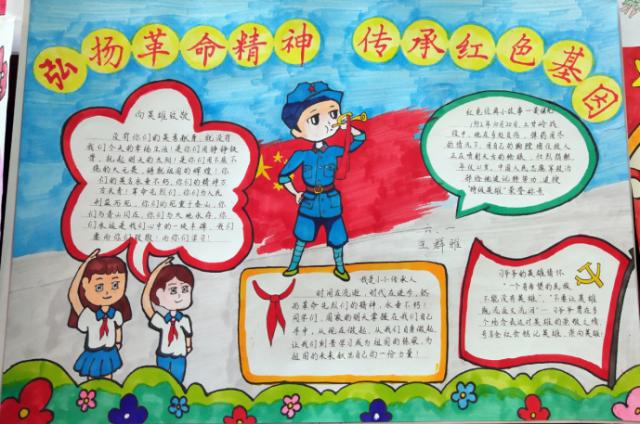 弘扬革命精神 传承红色基因
向英雄致敬
没有你们的英勇献身，就没有
我们今天的幸福生活！是你们用铮铮铁
骨，托起明天的太阳！是你们用不屈不
挠的大无畏，铸就祖国的辉煌！你
们的英名永垂不朽，你们的精神万
古长青！革命先烈们，你们为人民
利益而死，你们的死重于泰山，你
们与青山同在，你们与大地永存，你
们永远是我们心中的一块丰碑，我们
要向你们致敬！向你们学习！
红色经典小故事一黄继光
1952年10月20日，上甘岭战
役中，他在多处负伤、弹药用尽
的情况下，用自己的胸膛堵住敌人
正在喷射火舌的枪眼，壮烈捐躯，
年仅21岁。中国人民志愿军政治
部给他追记特等功，追授
“特级英雄”荣誉称号
六、一
王群雅
我是小小传承人
时间在流逝，时代在进步，然
而革命先烈们的精神，永垂不朽！
同学们，国家的明天掌握在我们自己
手中，从现在做起，从我们身边做起，
让我们刻苦学习成为祖国的栋梁，为
祖国的未来献出自己的一份力量！
习爷爷的英雄情怀
“一个有希望的民族
不能没有英雄”、“不要让英雄
既流血又流泪”一习爷爷曾在多
个场合表达对英雄的崇敬之情，
号召全社会铭记英雄、崇尚英雄。